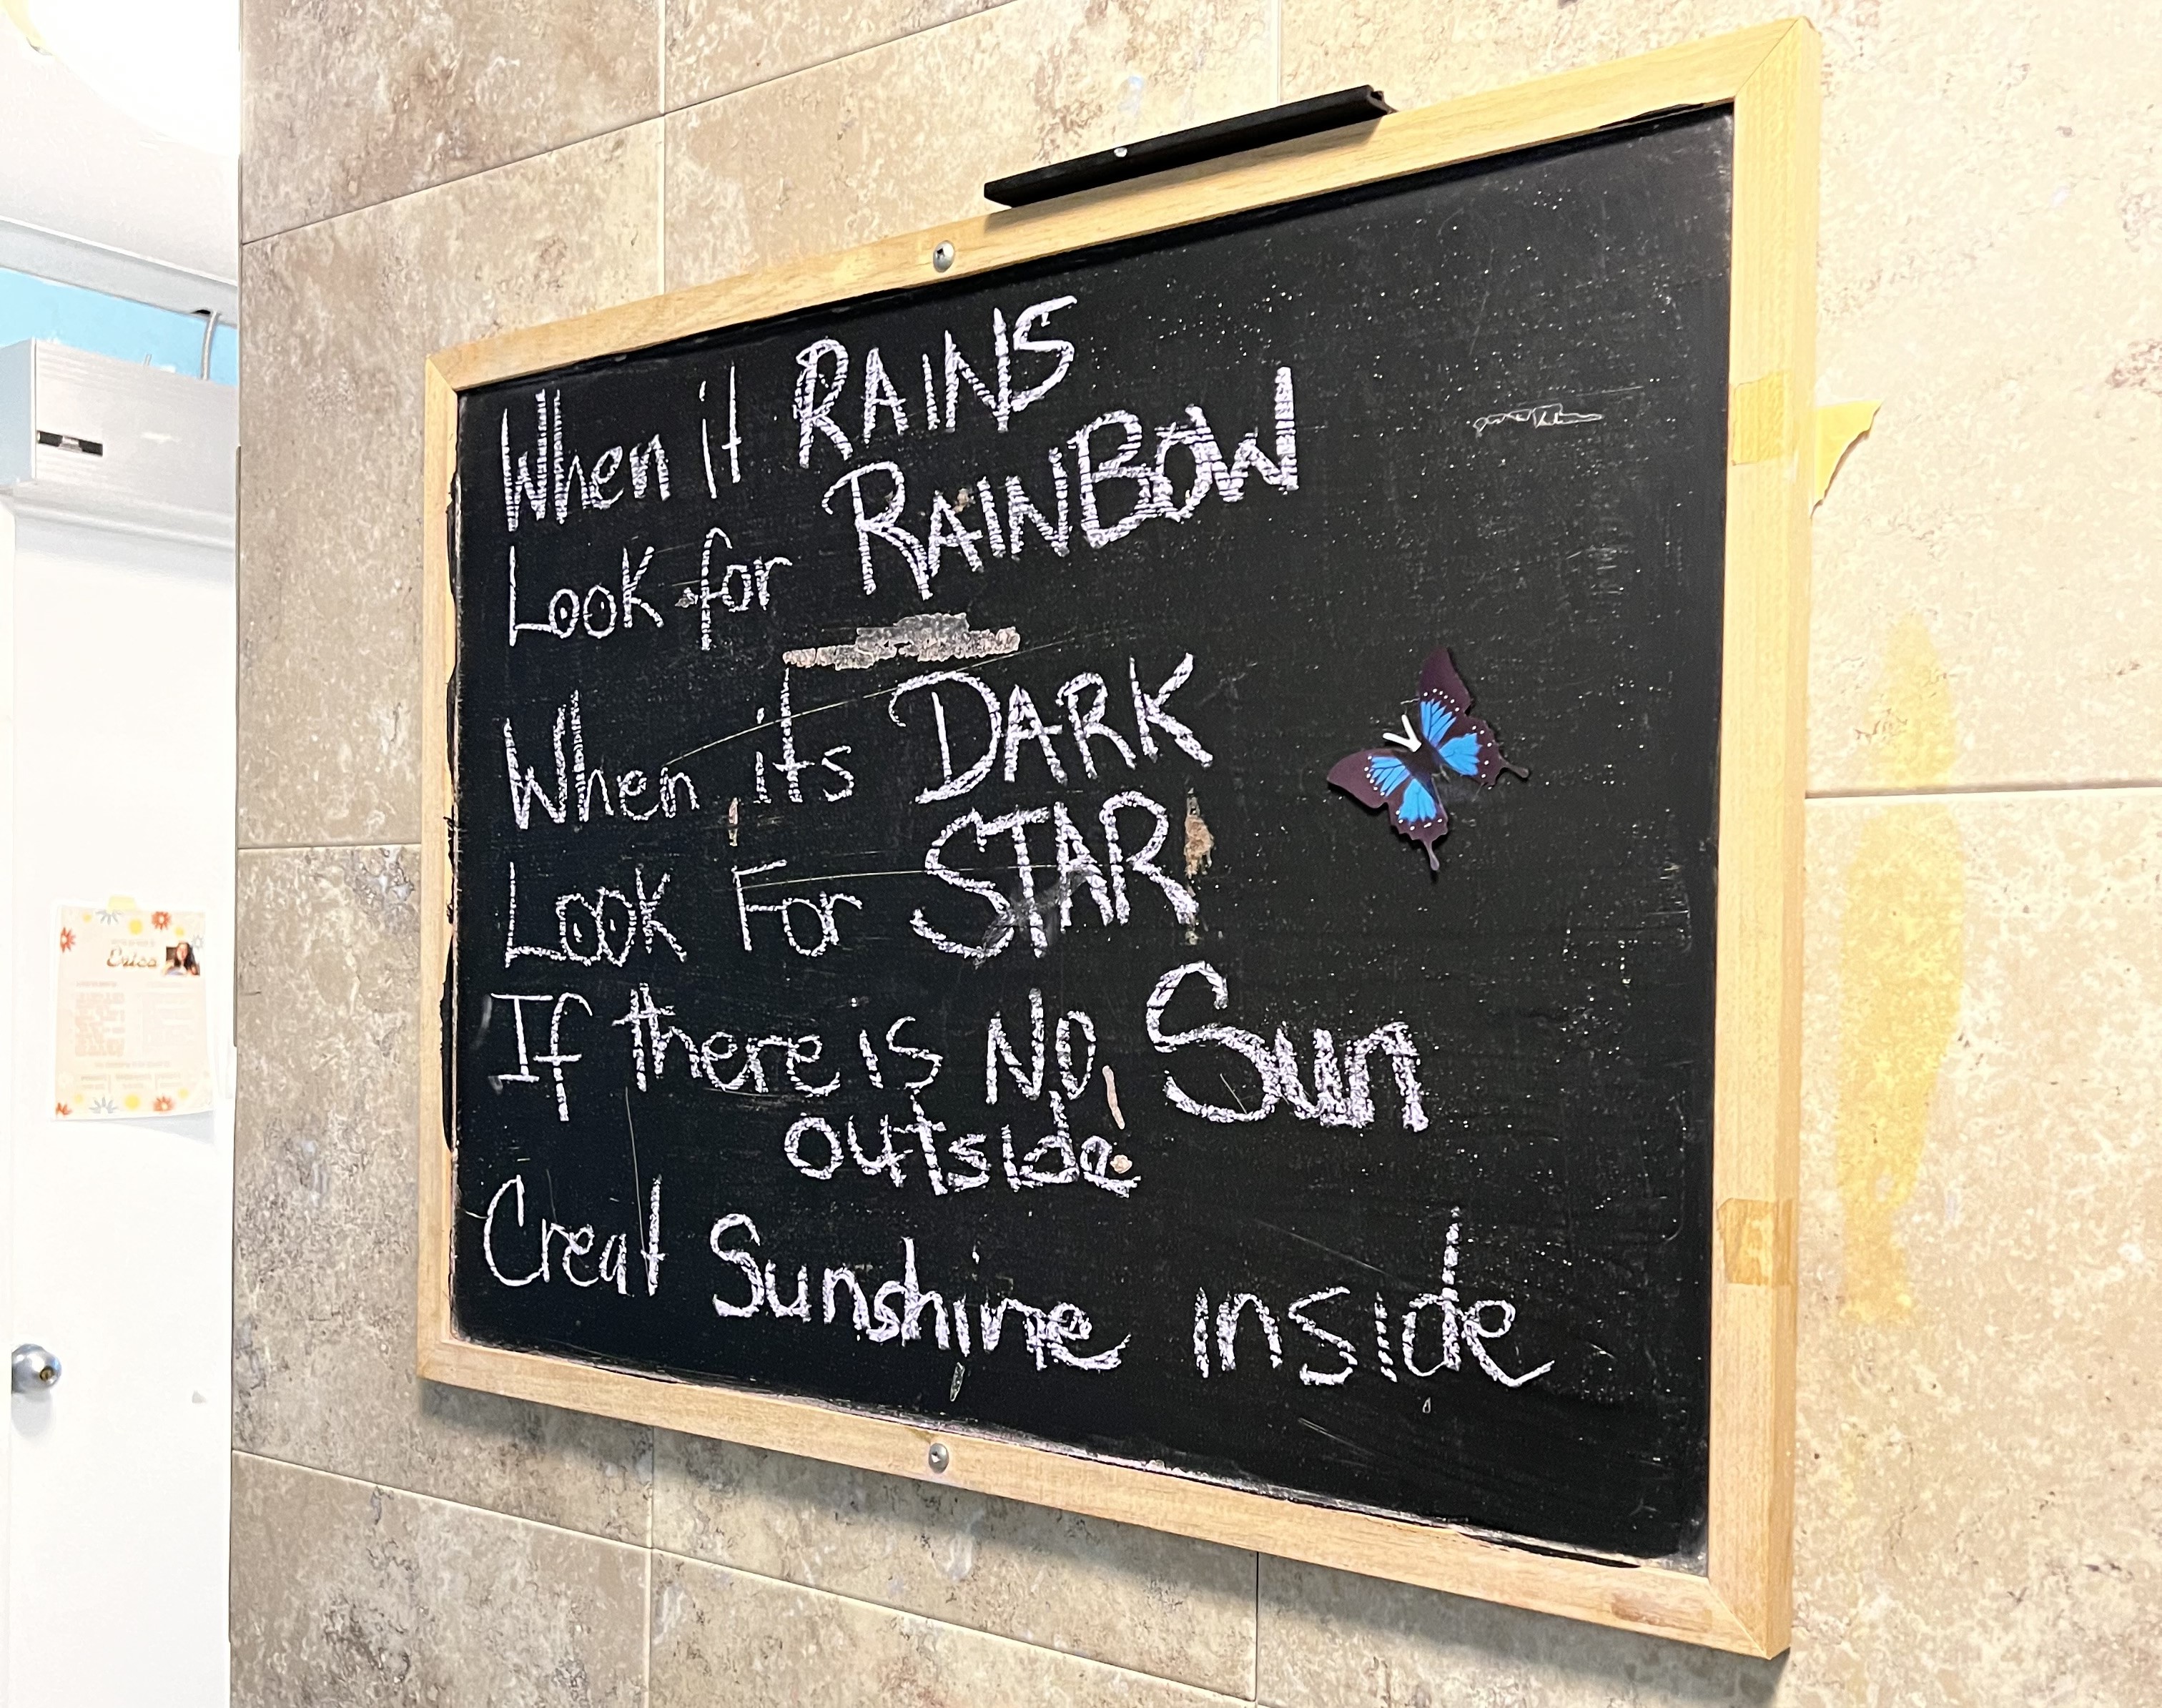 When it RAINS
Look for RAINBOW
When its DARK
Look For STAR
If there is NO Sun
outside
Creat Sunshine inside
Erica